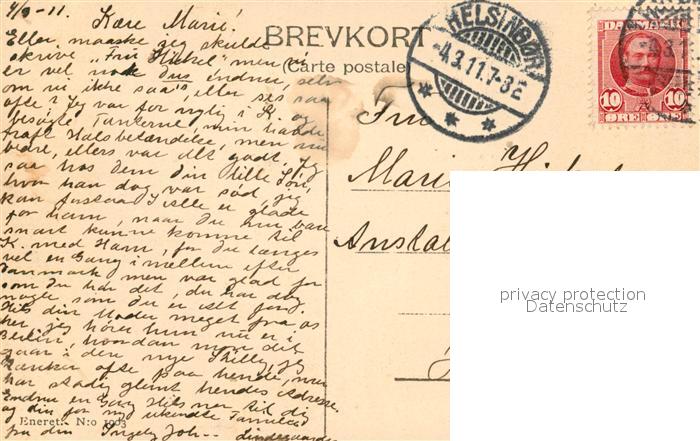 4/3-11.
Kære Marie!
Eller maaske jeg skulde
skrive "Fru Hickel" men vi
er vel nok dus endnu, selv
om vi ikke saa's eller ses saa
ofte? Jeg var for nylig i K. og
besøgte Tanterne, min havde
haft Halsbetændelse, men nu
bedre, ellers var alt godt. Jeg
saa hos dem din lille Søn,
hvor han dog var sød, jeg
kan forstaa I alle er glade
for ham, naar du nu bare
snart kunne komme til
K. med Ham, for du længes
vel en Gang imellem efter
Danmark, men var glad for
som du har det, du har dog
nogle som du er alt for.
Hils din Moder meget fra os
her, jeg hører hun nu er i
Berlin, hvordan mon det
gaar i den nye Stilling, jeg
tænker ofte paa hende, men
har stadig glemt hendes Adresse.
Endnu en Gang Hils nu til dig
og din for mig ukendte Familie
fra din Ingeborg
Eneret. N:o 1903
BREVKORT
(Carte postale)
HELSINGØR
4.3.11.7-8E
DANMARK
10 10
ØRE ØRE
4.3.1
Fru
Marie
Anstal
privacy protection
Datenschutz